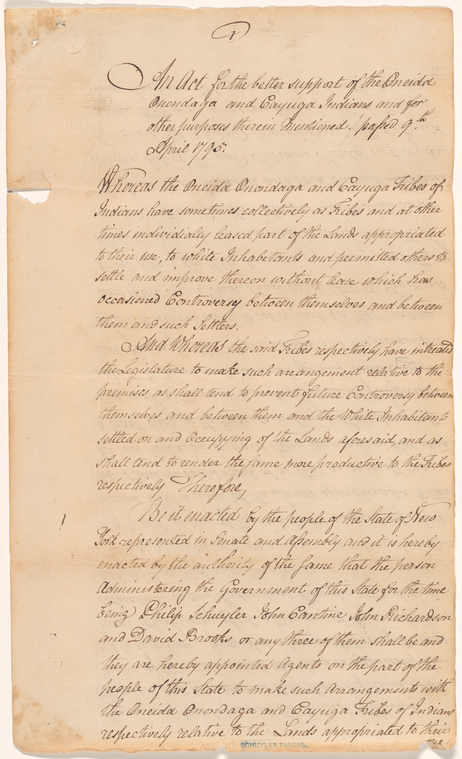 1
An Act for the better support of the Oneida
Onondaga and Cayuga Indians and for
other purposes therein mentioned, passed 9th
April 1795.
Whereas the Oneida Onondaga and Cayuga Tribes of
Indians have sometimes collectively as Tribes and at other
times individualy leased part of the Lands appropriated
to their use, to white Inhabitants and permitted others to
settle and improve thereon without lease which has
occasioned Controversy between themselves and between
them and such Settlers.
And Whereas the said Tribes respectively have intreated
the Legislature to make such arrangement relative to the
premises as shall tend to prevent future Controversy between
themselves and between them and the White Inhabitants
settled on and Occupying of the Lands aforesaid, and as
shall tend to render the same more productive to the Tribes
respectively Therefore,
Be it enacted by the people of the State of New
York represented in Senate and Assembly and it is hereby
enacted by the authority of the same that the person
Administering the Government of this State for the time
being Philip Schuyler John Cantine John Richardson
and David Brooks or any three of them shall be and
they are hereby appointed Agents on the part of the
people of this State to make such Arrangements with
the Oneida Onondaga and Cayuga Tribes of Indians
respectively relative to the Lands appropriated to their
SCHUYLER PAPERS
use